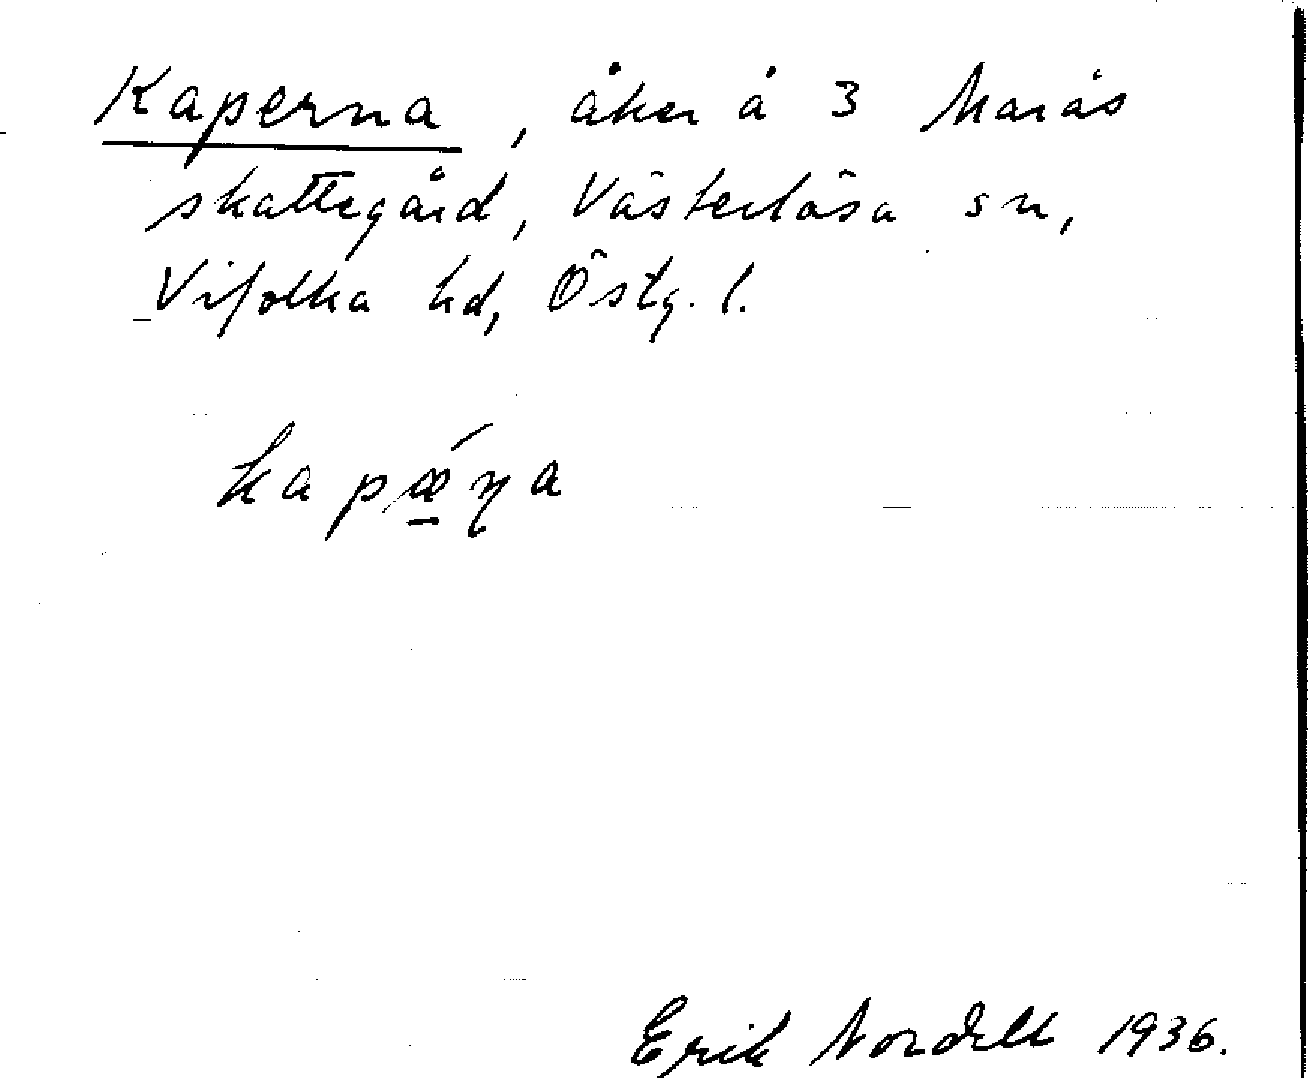 Kaperna, åker å 3 Marås
skattegård, Västerlösa sn,
Vifolka hd, Östg. l.
kapǽ̱ŋa
Erik Nordell 1936.